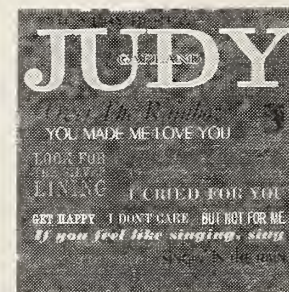 JUDY
GARLAND
Over The Rainbow
YOU MADE ME LOVE YOU
LOOK FOR
THE SILVER
LINING
I CRIED FOR YOU
GET HAPPY I DON'T CARE BUT NOT FOR ME
If you feel like singing, sing
SINGIN' IN THE RAIN